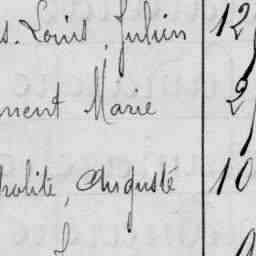 s. Louis, Julien 12
ment Marie 2
polite, Auguste 10